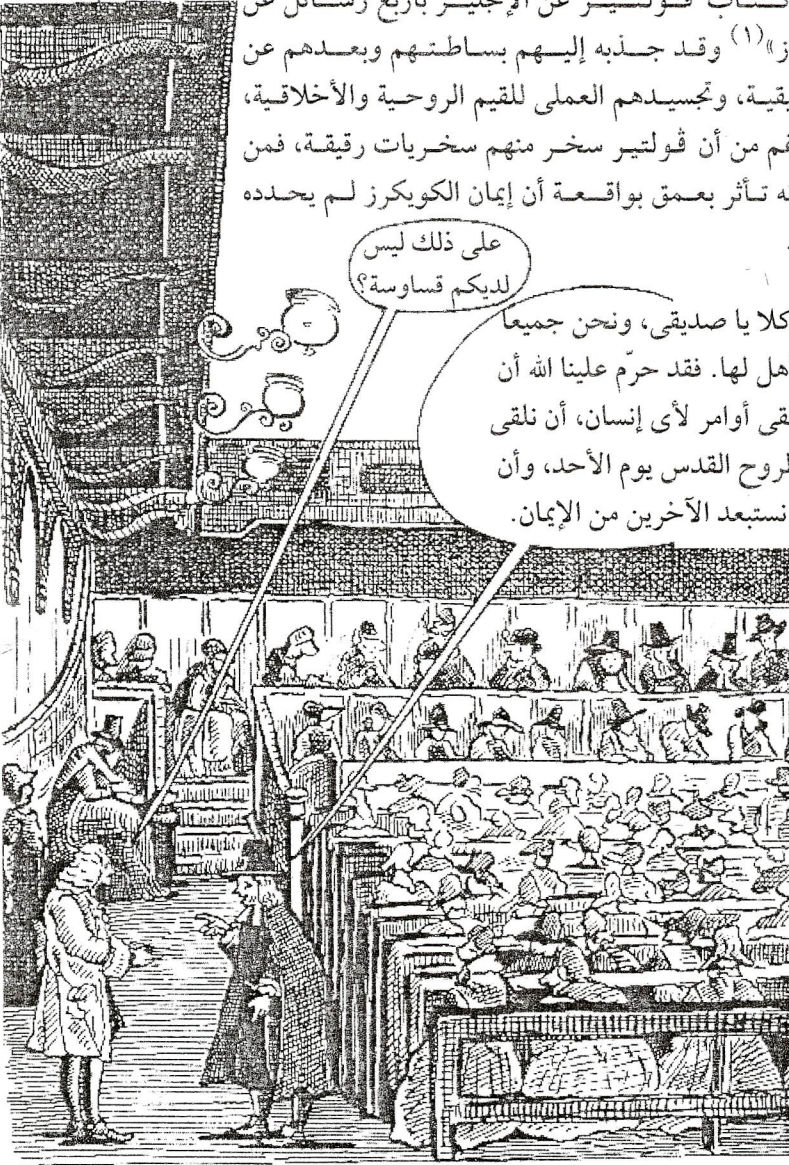 ڤولتيـر عن الإنجليـز بأربع رسـائل عن
ز»(١) وقد جـذبه إليـهم بسـاطتـهم وبعـدهم عن
وتجسيـدهم العملى للقيم الروحـية والأخلاقيـة،
من أن ڤـولتيـر سخـر منهم سخـريات رقيقـة، فمن
تـأثر بعـمق بواقـعـة أن إيمان الكويكرز لـم يحـدده
على ذلك ليس
لديكم قساوسة؟
كلا يا صديقى، ونحن جميعا
أهل لها. فقد حرّم علينا الله أن
أوامر لأى إنسان، أن نلقى
الروح القدس يوم الأحد، وأن
نستبعد الآخرين من الإيمان.